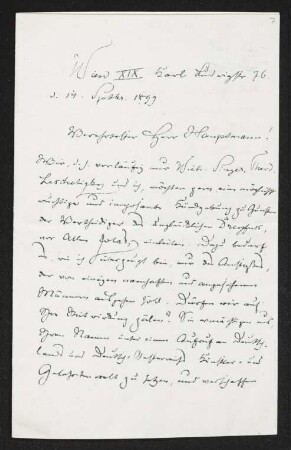 7
Wien XIX Karl Ludwigstr 76.
d. 14. Septbr. 1899
Verehrtester Herr Hauptmann!
Wir, d. h. vorläufig nur Wilh. Singer,
und ich, möchten gern eine möglichst
wichtige und imposante Kundgebung zu Gunsten
der Vertheidiger des unglücklichen Dreyfus,
vor Allen Zolas, einleiten. Dazu bedarf
es, wie ich überzeugt bin, nur des Anstoßes
der von einigen namhaften und angesehenen
Männern ausgehen soll. Dürfen wir auf
Ihre Mitwirkung zälen? Sie ermächtigen uns
Ihren Namen unter einen Aufruf an Deutsch-
lands und Deutsch-Österreichs Künstler- und
Gelehrtenwelt zu setzen, und verschaffen